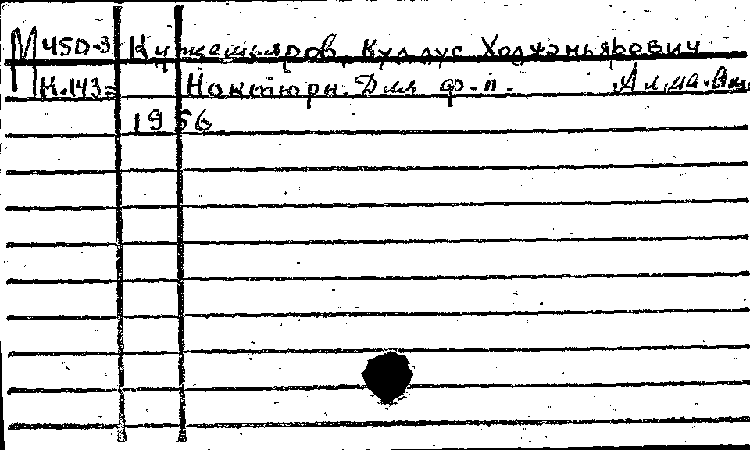 М 450-3 Кужамьяров, Куддус Ходжамьярович
Н.143 Ноктюрн. Для ф-п. Алма-Ата,
1956